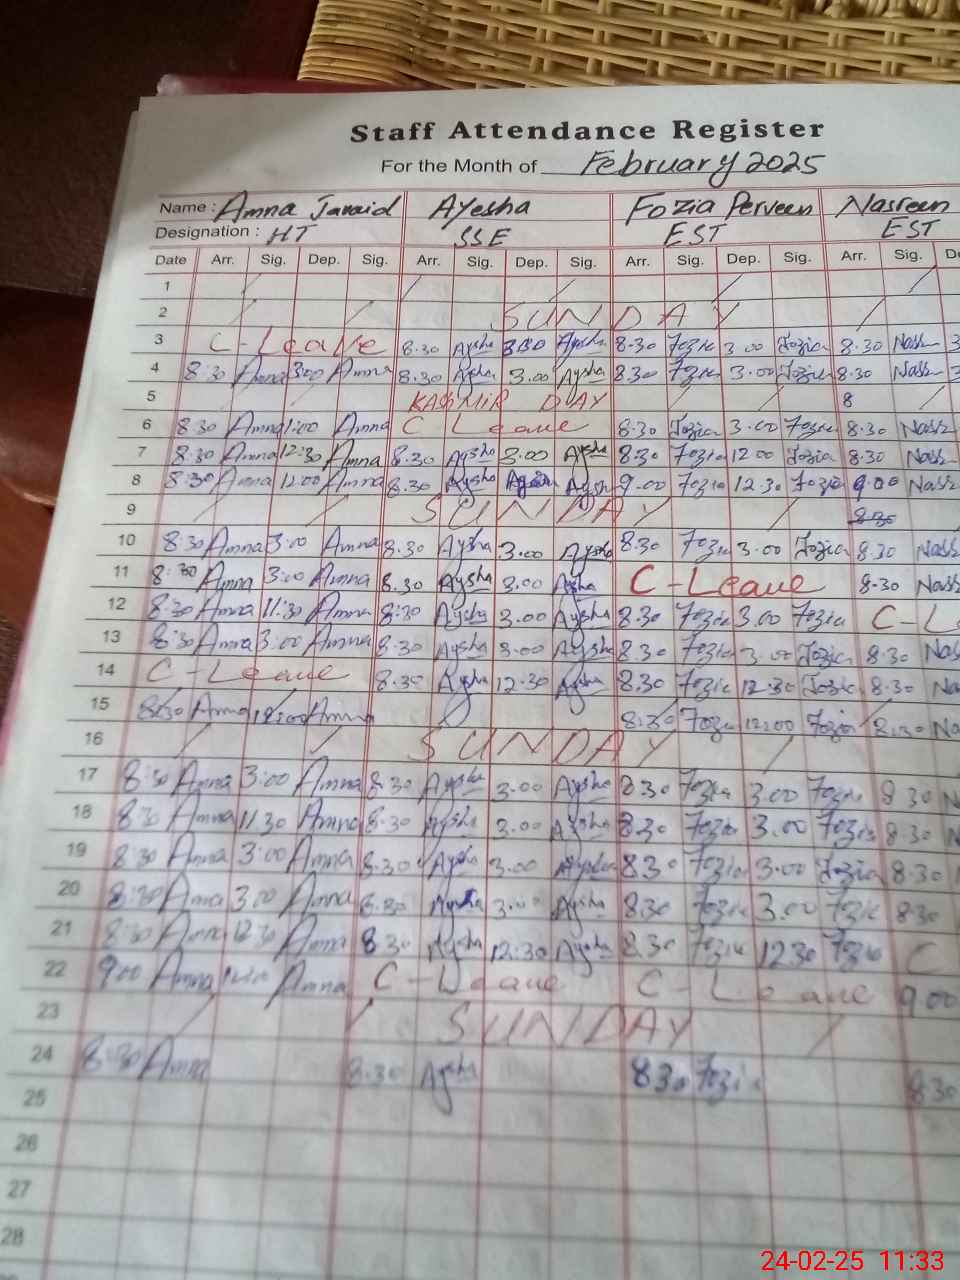 Staff Attendance Register
For the Month of February 2025
Name : Amna Javaid Ayesha Fozia Perveen Nasreen
Designation : HT SSE EST EST
Date Arr. Sig. Dep. Sig. Arr. Sig. Dep. Sig. Arr. Sig. Dep. Sig. Arr. Sig. De
1
2 SUNDAY
3 C-Leave 8.30 Aysha 3.00 Aysha 8.30 Fozia 3.00 Fozia 8.30 Nasr 3
4 8:30 Amna 3:00 Amna 8.30 Aysha 3.00 Aysha 8.30 Fozia 3.00 Fozia 8.30 Nasr 3
5 KASHMIR DAY 8
6 8:30 Amna 1:00 Amna C Leave 8.30 Fozia 3.00 Fozia 8.30 Nasr
7 8:30 Amna 12:30 Amna 8.30 Aysha 3.00 Aysha 8.30 Fozia 12.00 Fozia 8.30 Nasr
8 8:30 Amna 12:00 Amna 8.30 Aysha Aysha 9.00 Fozia 12.30 Fozia 9.00 Nasr
9 SUNDAY 8.30
10 8:30 Amna 3:00 Amna 8.30 Aysha 3.00 Aysha 8.30 Fozia 3.00 Fozia 8.30 Nasr
11 8:30 Amna 3:00 Amna 8.30 Aysha 3.00 Aysha C-Leave 8.30 Nasr
12 8:30 Amna 11:30 Amna 8:30 Aysha 3.00 Aysha 8.30 Fozia 3.00 Fozia C-L
13 8:30 Amna 3:00 Amna 8.30 Aysha 3.00 Aysha 8.30 Fozia 3.00 Fozia 8.30 Nas
14 C-Leave 8.30 Aysha 12.30 Aysha 8.30 Fozia 12.30 Fozia 8.30 Na
15 8:30 Amna 12:00 Amna 8.30 Fozia 12:00 Fozia 8.30 Na
16 SUNDAY
17 8:30 Amna 3:00 Amna 8.30 Aysha 3.00 Aysha 8.30 Fozia 3.00 Fozia 8.30 N
18 8:30 Amna 11.30 Amna 8.30 Aysha 3.00 Aysha 8.30 Fozia 3.00 Fozia 8.30 N
19 8:30 Amna 3:00 Amna 8.30 Aysha 3.00 Aysha 8.30 Fozia 3.00 Fozia 8.30
20 8:30 Amna 3:00 Amna 8.30 Aysha 3.00 Aysha 8.30 Fozia 3.00 Fozia 8.30
21 8:30 Amna 12:30 Amna 8.30 Aysha 12:30 Aysha 8.30 Fozia 12.30 Fozia C
22 9:00 Amna Amna C-Leave C-Leave 9.00
23 SUNDAY
24 8:30 Amna 8.30 Aysha 8.30 Fozia 8.30
25
26
27
28
24-02-25 11:33